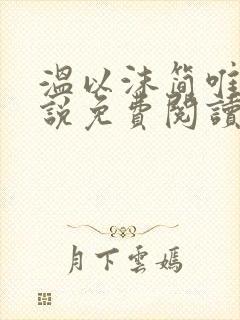 溫以沫簡唯
說免費閱讀
月下雲嫣